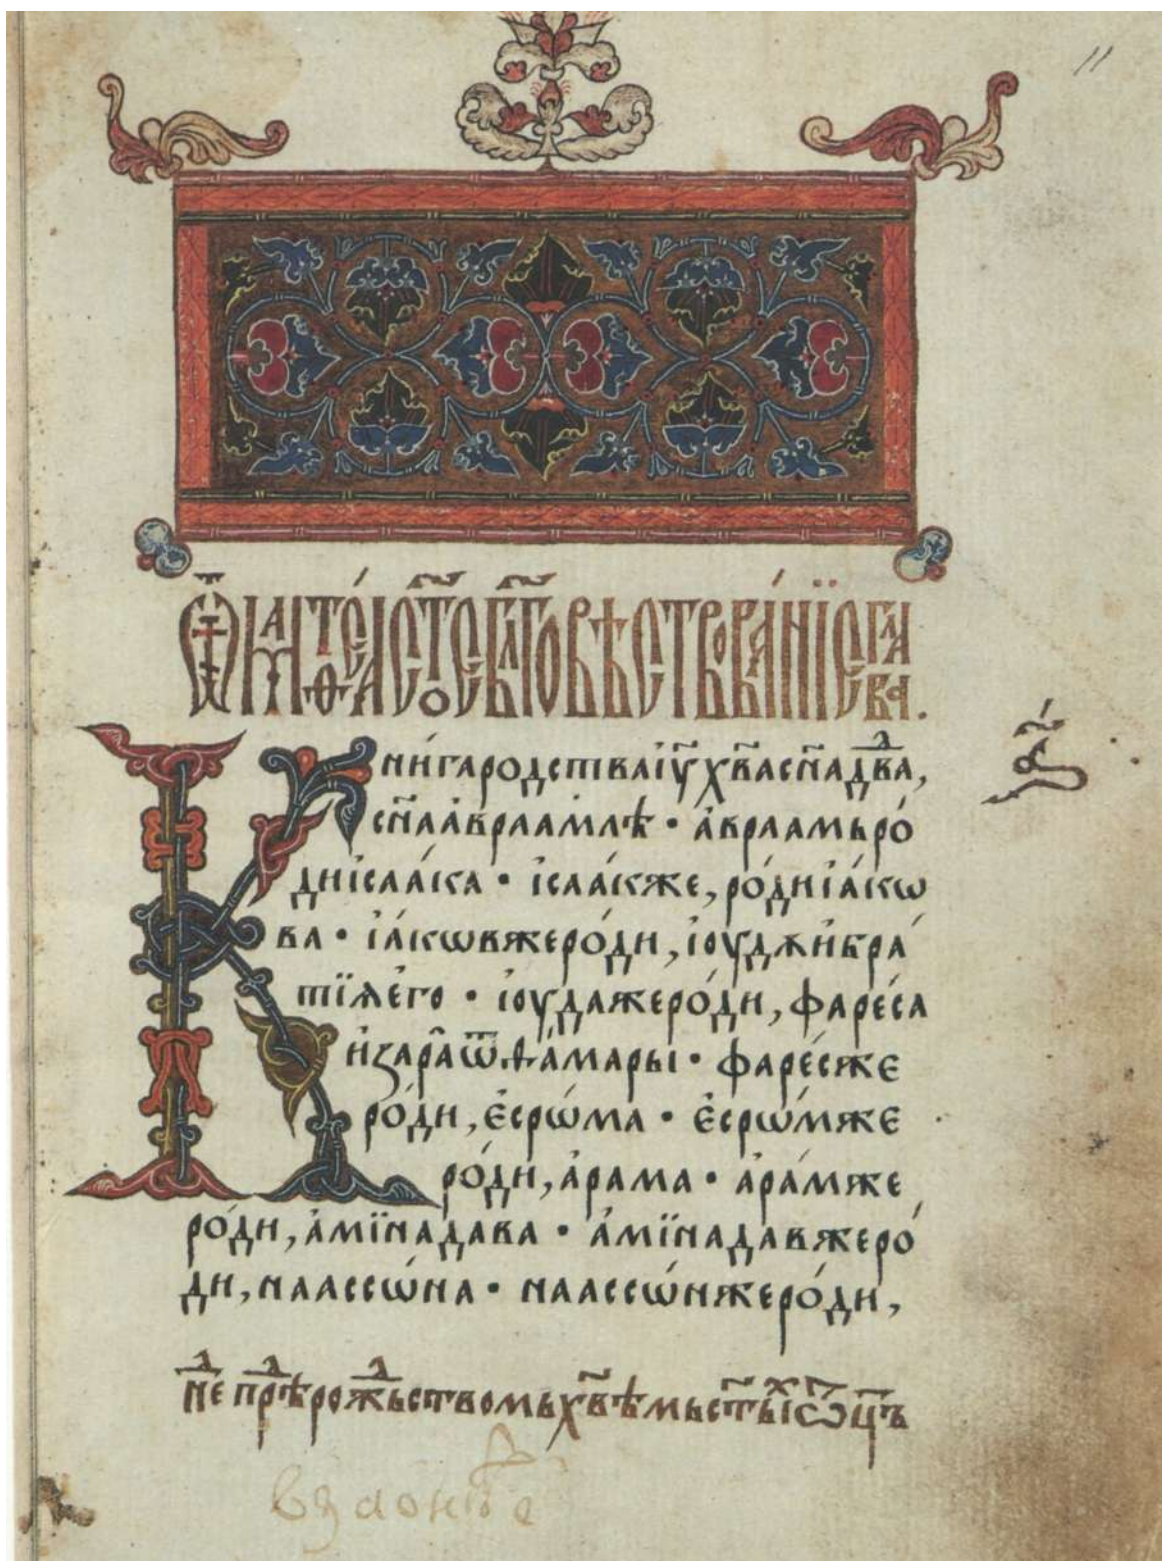 11
Ѿ маттеа ст҃ое бл҃говѣствованїе глава.
а҃
Кни́га родства і҆у҃ х҃ва сн҃а дв҃да,
сн҃а а҆враа́млѣ · а҆враамь ро́
ди і҆саа́ка · і҆саа́к же, ро́ди і҆а́кѡ
ва · і҆а́кѡв же ро́ди, і҆оудѫ и҆ бра́
тїѧ е҆го · і҆оуда же ро́ди, фаре́са
и҆ зара ѿ ѳа́мары · фаре́с же
ро́ди, е҆срѡ́ма · е҆срѡ́м же
ро́ди, а҆рама · а҆ра́м же
ро́ди, а҆мїнадава · а҆мїнадав же ро́
ди, наассѡ́на · наассѡ́н же ро́ди,
нед҃ прѣд рождьством х҃вѣмь ст҃ыих ѡц҃ъ